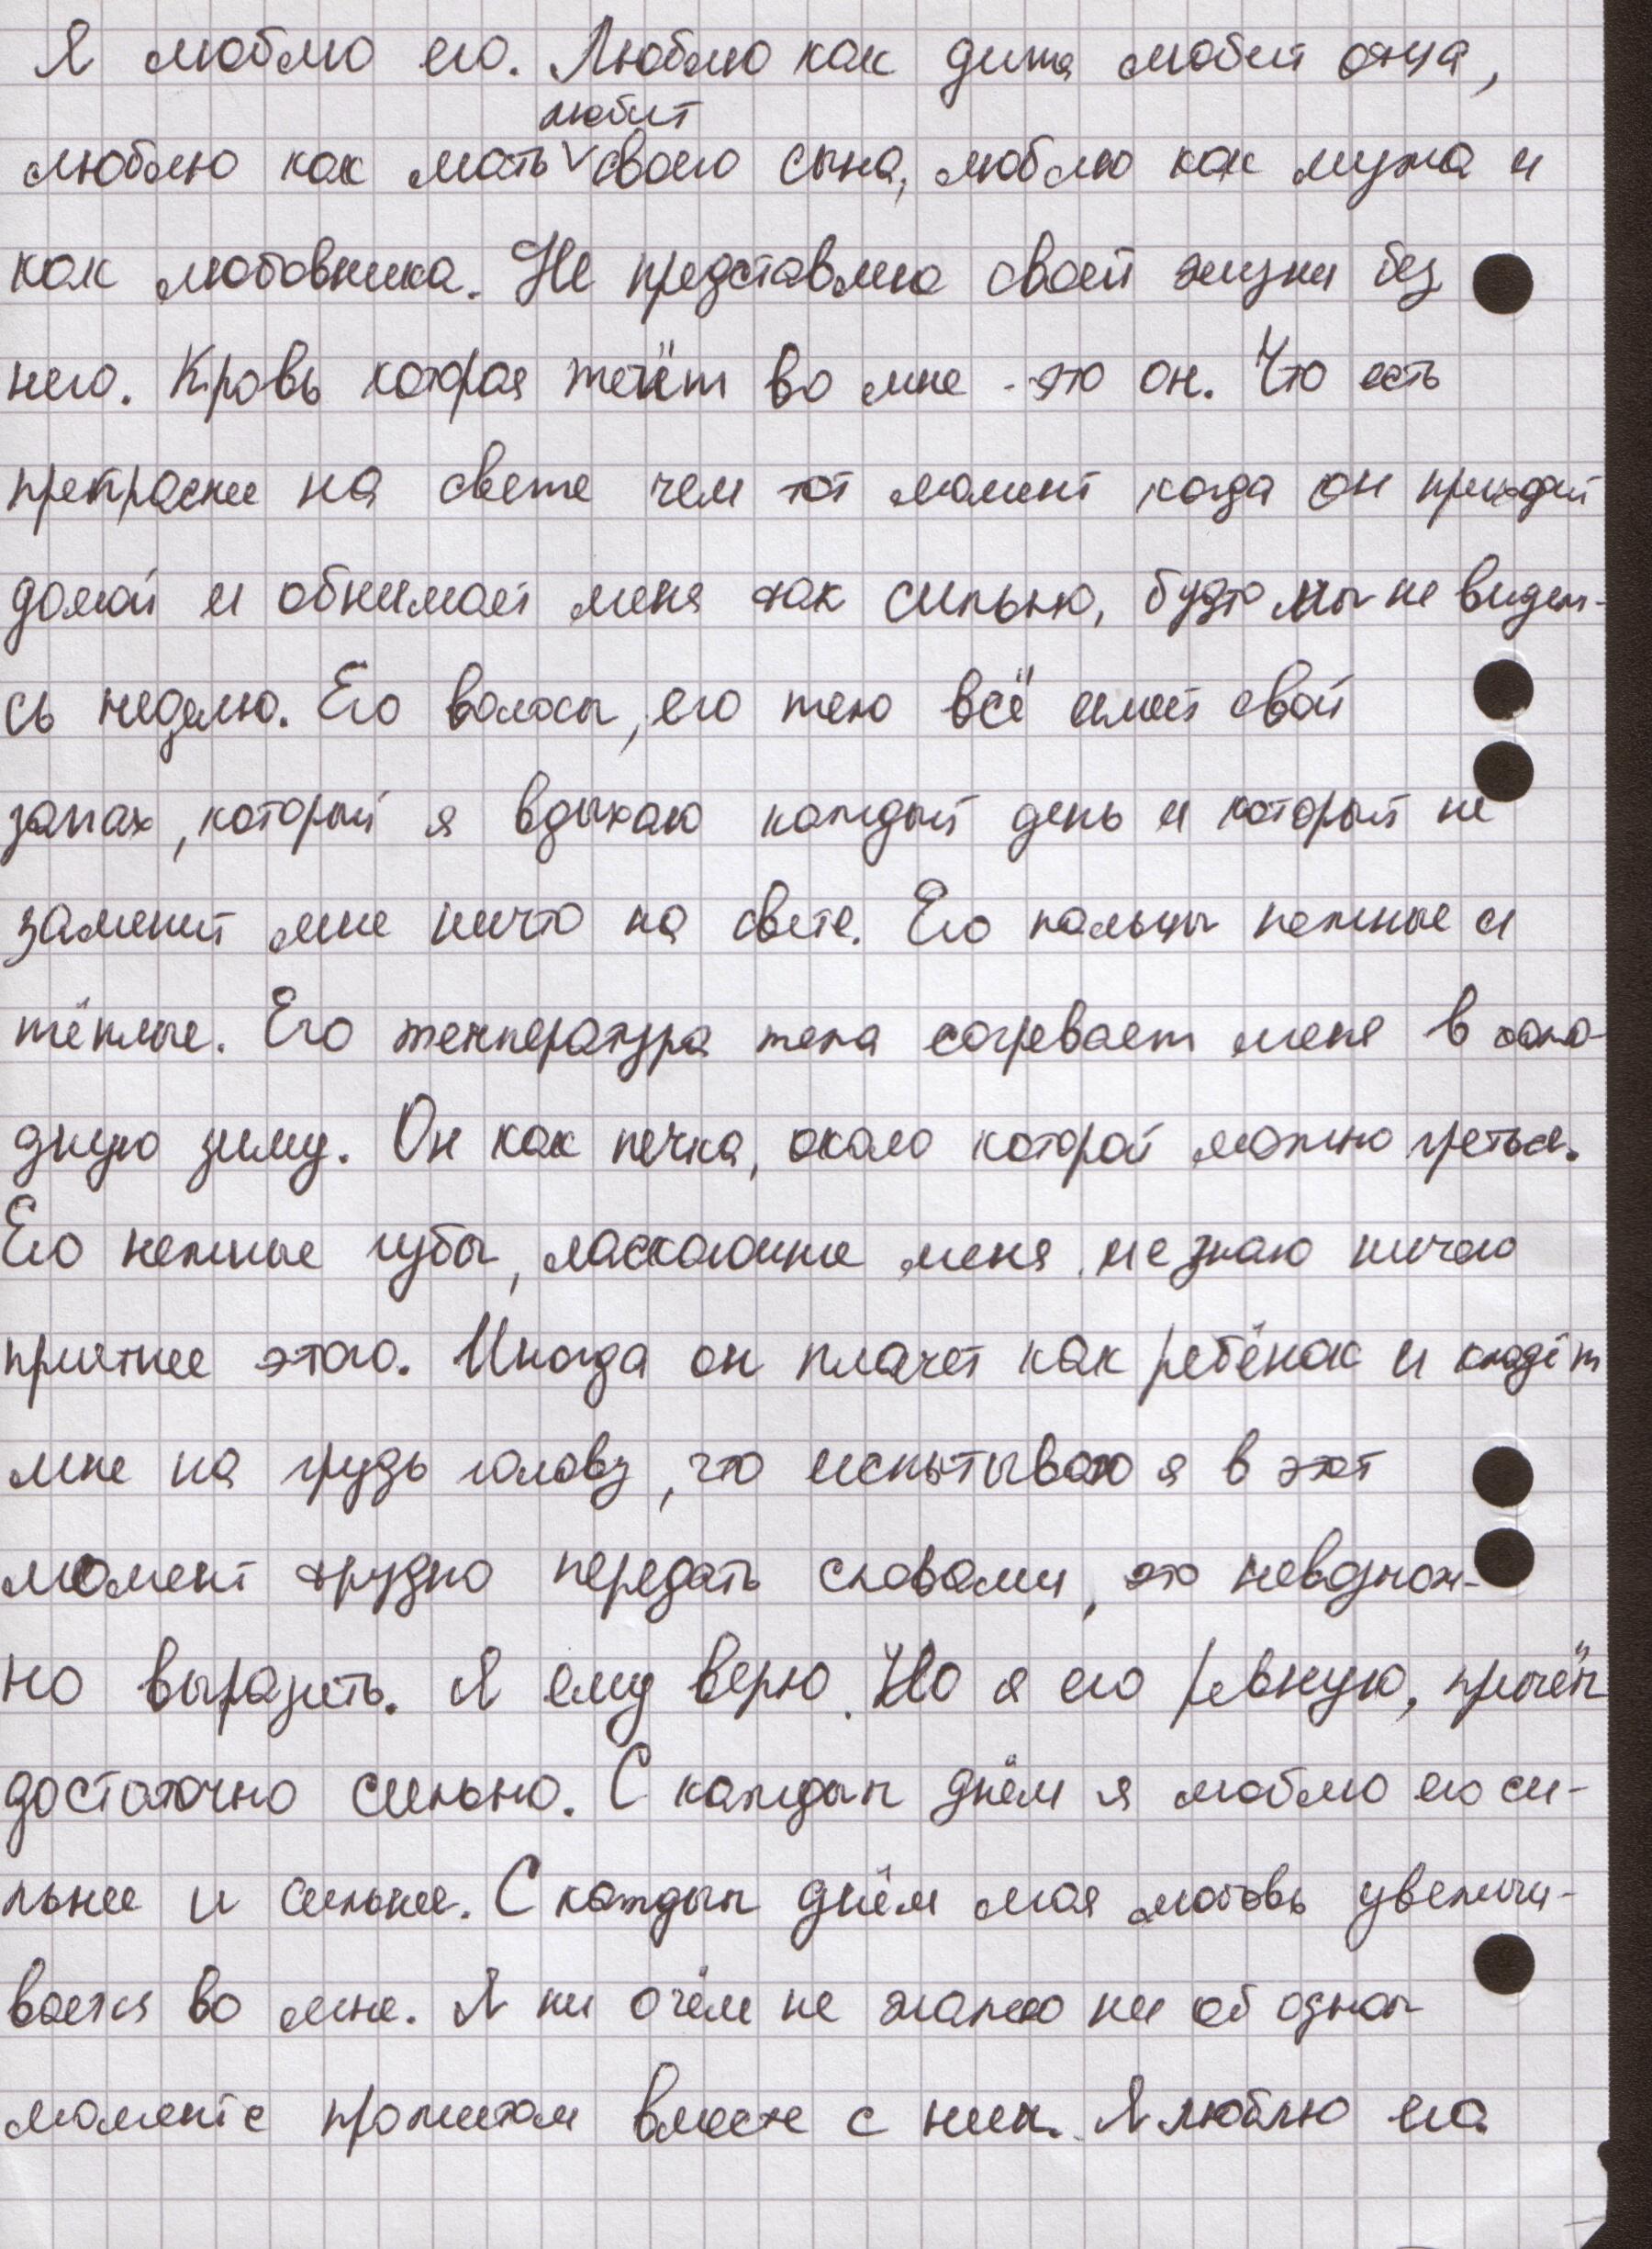 Я люблю его. Люблю как дитя любит отца,
любит
люблю как мать своего сына, люблю как мужа и
как любовника. Не представлю своей жизни без
него. Кровь которая течёт во мне - это он. Что есть
прекраснее на свете чем тот момент когда он приходит
домой и обнимает меня так сильно, будто мы не видели-
сь неделю. Его волосы, его тело всё имеет свой
запах, который я вдыхаю каждый день и который не
заменит мне ничто на свете. Его пальцы нежные и
тёплые. Его температура тела согревает меня в холо-
дную зиму. Он как печка, около которой можно греться.
Его нежные губы, ласкающие меня, не знаю ничего
приятнее этого. Иногда он плачет как ребёнок и кладёт
мне на грудь голову, что испытываю я в этот
момент трудно передать словами, это невозмож-
но выразить. Я ему верю. Но я его ревную, причём
достаточно сильно. С каждым днём я люблю его си-
льнее и сильнее. С каждым днём моя любовь увеличи-
вается во мне. Я ни о чём не жалею ни об одном
моменте прожитом вместе с ним. Я люблю его.